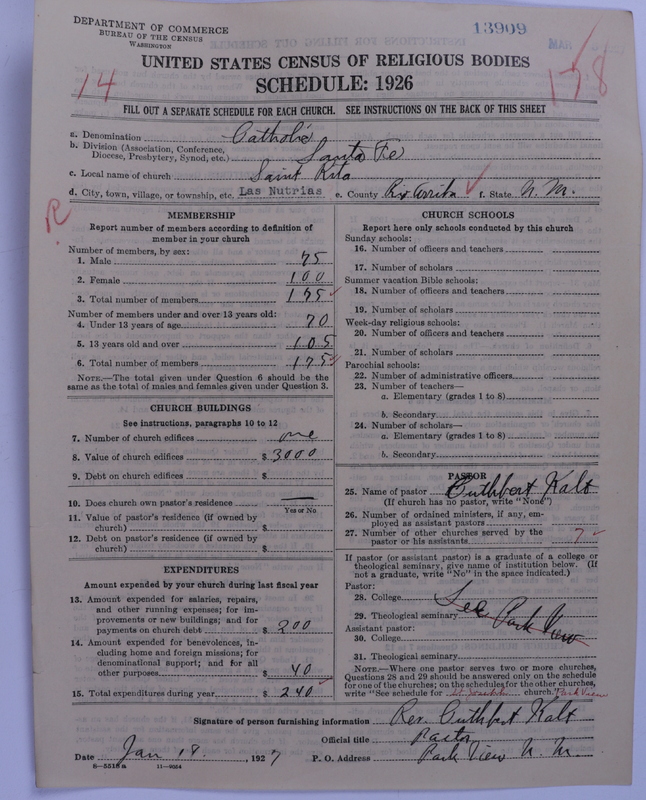 DEPARTMENT OF COMMERCE
BUREAU OF THE CENSUS
WASHINGTON
13909
UNITED STATES CENSUS OF RELIGIOUS BODIES
SCHEDULE: 1926
14
178
FILL OUT A SEPARATE SCHEDULE FOR EACH CHURCH. SEE INSTRUCTIONS ON THE BACK OF THIS SHEET
a. Denomination Catholic
b. Division (Association, Conference, Diocese, Presbytery, Synod, etc.) Santa Fe
c. Local name of church Saint Rita
d. City, town, village, or township, etc. Las Nutrias e. County Rio Arriba f. State N. M.
R
MEMBERSHIP
Report number of members according to definition of
member in your church
Number of members, by sex:
1. Male 75
2. Female 100
3. Total number of members 175
Number of members under and over 13 years old:
4. Under 13 years of age 70
5. 13 years old and over 105
6. Total number of members 175
NOTE.—The total given under Question 6 should be
same as the total of males and females given under Question 3.
CHURCH BUILDINGS
See instructions, paragraphs 10 to 12
7. Number of church edifices one
8. Value of church edifices $ 3000
9. Debt on church edifices $
10. Does church own pastor's residence —
Yes or No
11. Value of pastor's residence (if owned by
church) $
12. Debt on pastor's residence (if owned by
church) $
EXPENDITURES
Amount expended by your church during last fiscal year
13. Amount expended for salaries, repairs,
and other running expenses; for im-
provements or new buildings; and for
payments on church debt $ 200
14. Amount expended for benevolences, in-
cluding home and foreign missions; for
denominational support; and for all
other purposes $ 40
15. Total expenditures during year $ 240
CHURCH SCHOOLS
Report here only schools conducted by this church
Sunday schools:
16. Number of officers and teachers
17. Number of scholars
Summer vacation Bible schools:
18. Number of officers and teachers
19. Number of scholars
Week-day religious schools:
20. Number of officers and teachers
21. Number of scholars
Parochial schools:
22. Number of administrative officers
23. Number of teachers—
a. Elementary (grades 1 to 8)
b. Secondary
24. Number of scholars—
a. Elementary (grades 1 to 8)
b. Secondary
PASTOR
25. Name of pastor Cuthbert Kalt
(If church has no pastor, write "None")
26. Number of ordained ministers, if any, em-
ployed as assistant pastors
27. Number of other churches served by the
pastor or his assistants 7
If pastor (or assistant pastor) is a graduate of a college or
theological seminary, give name of institution below. (If
not a graduate, write "No" in the space indicated.)
Pastor:
28. College See
29. Theological seminary Park View
Assistant pastor:
30. College
31. Theological seminary
NOTE.—Where one pastor serves two or more churches,
Questions 28 and 29 should be answered only on the schedule
for one of the churches; on the schedules for the other churches,
write "See schedule for St Joseph church." Park View
Signature of person furnishing information Rev. Cuthbert Kalt
Official title Pastor
Date Jan 18, 1927 P. O. Address Park View N. M.
8—5518a 11—9664